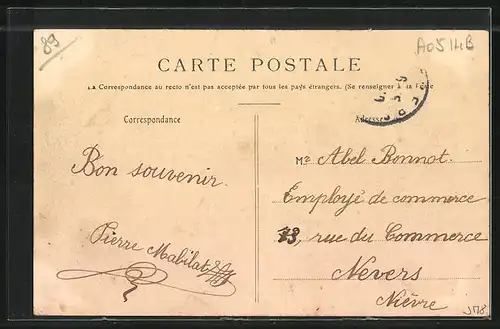 89
A0514B
CARTE POSTALE
La Correspondance au recto n'est pas acceptée par tous les pays étrangers. (Se renseigner à la Poste
Correspondance
Adresse
Bon souvenir.
Pierre Mabilat
Mr Abel Bonnot.
Employé de commerce
73, rue du Commerce
Nevers
Nièvre